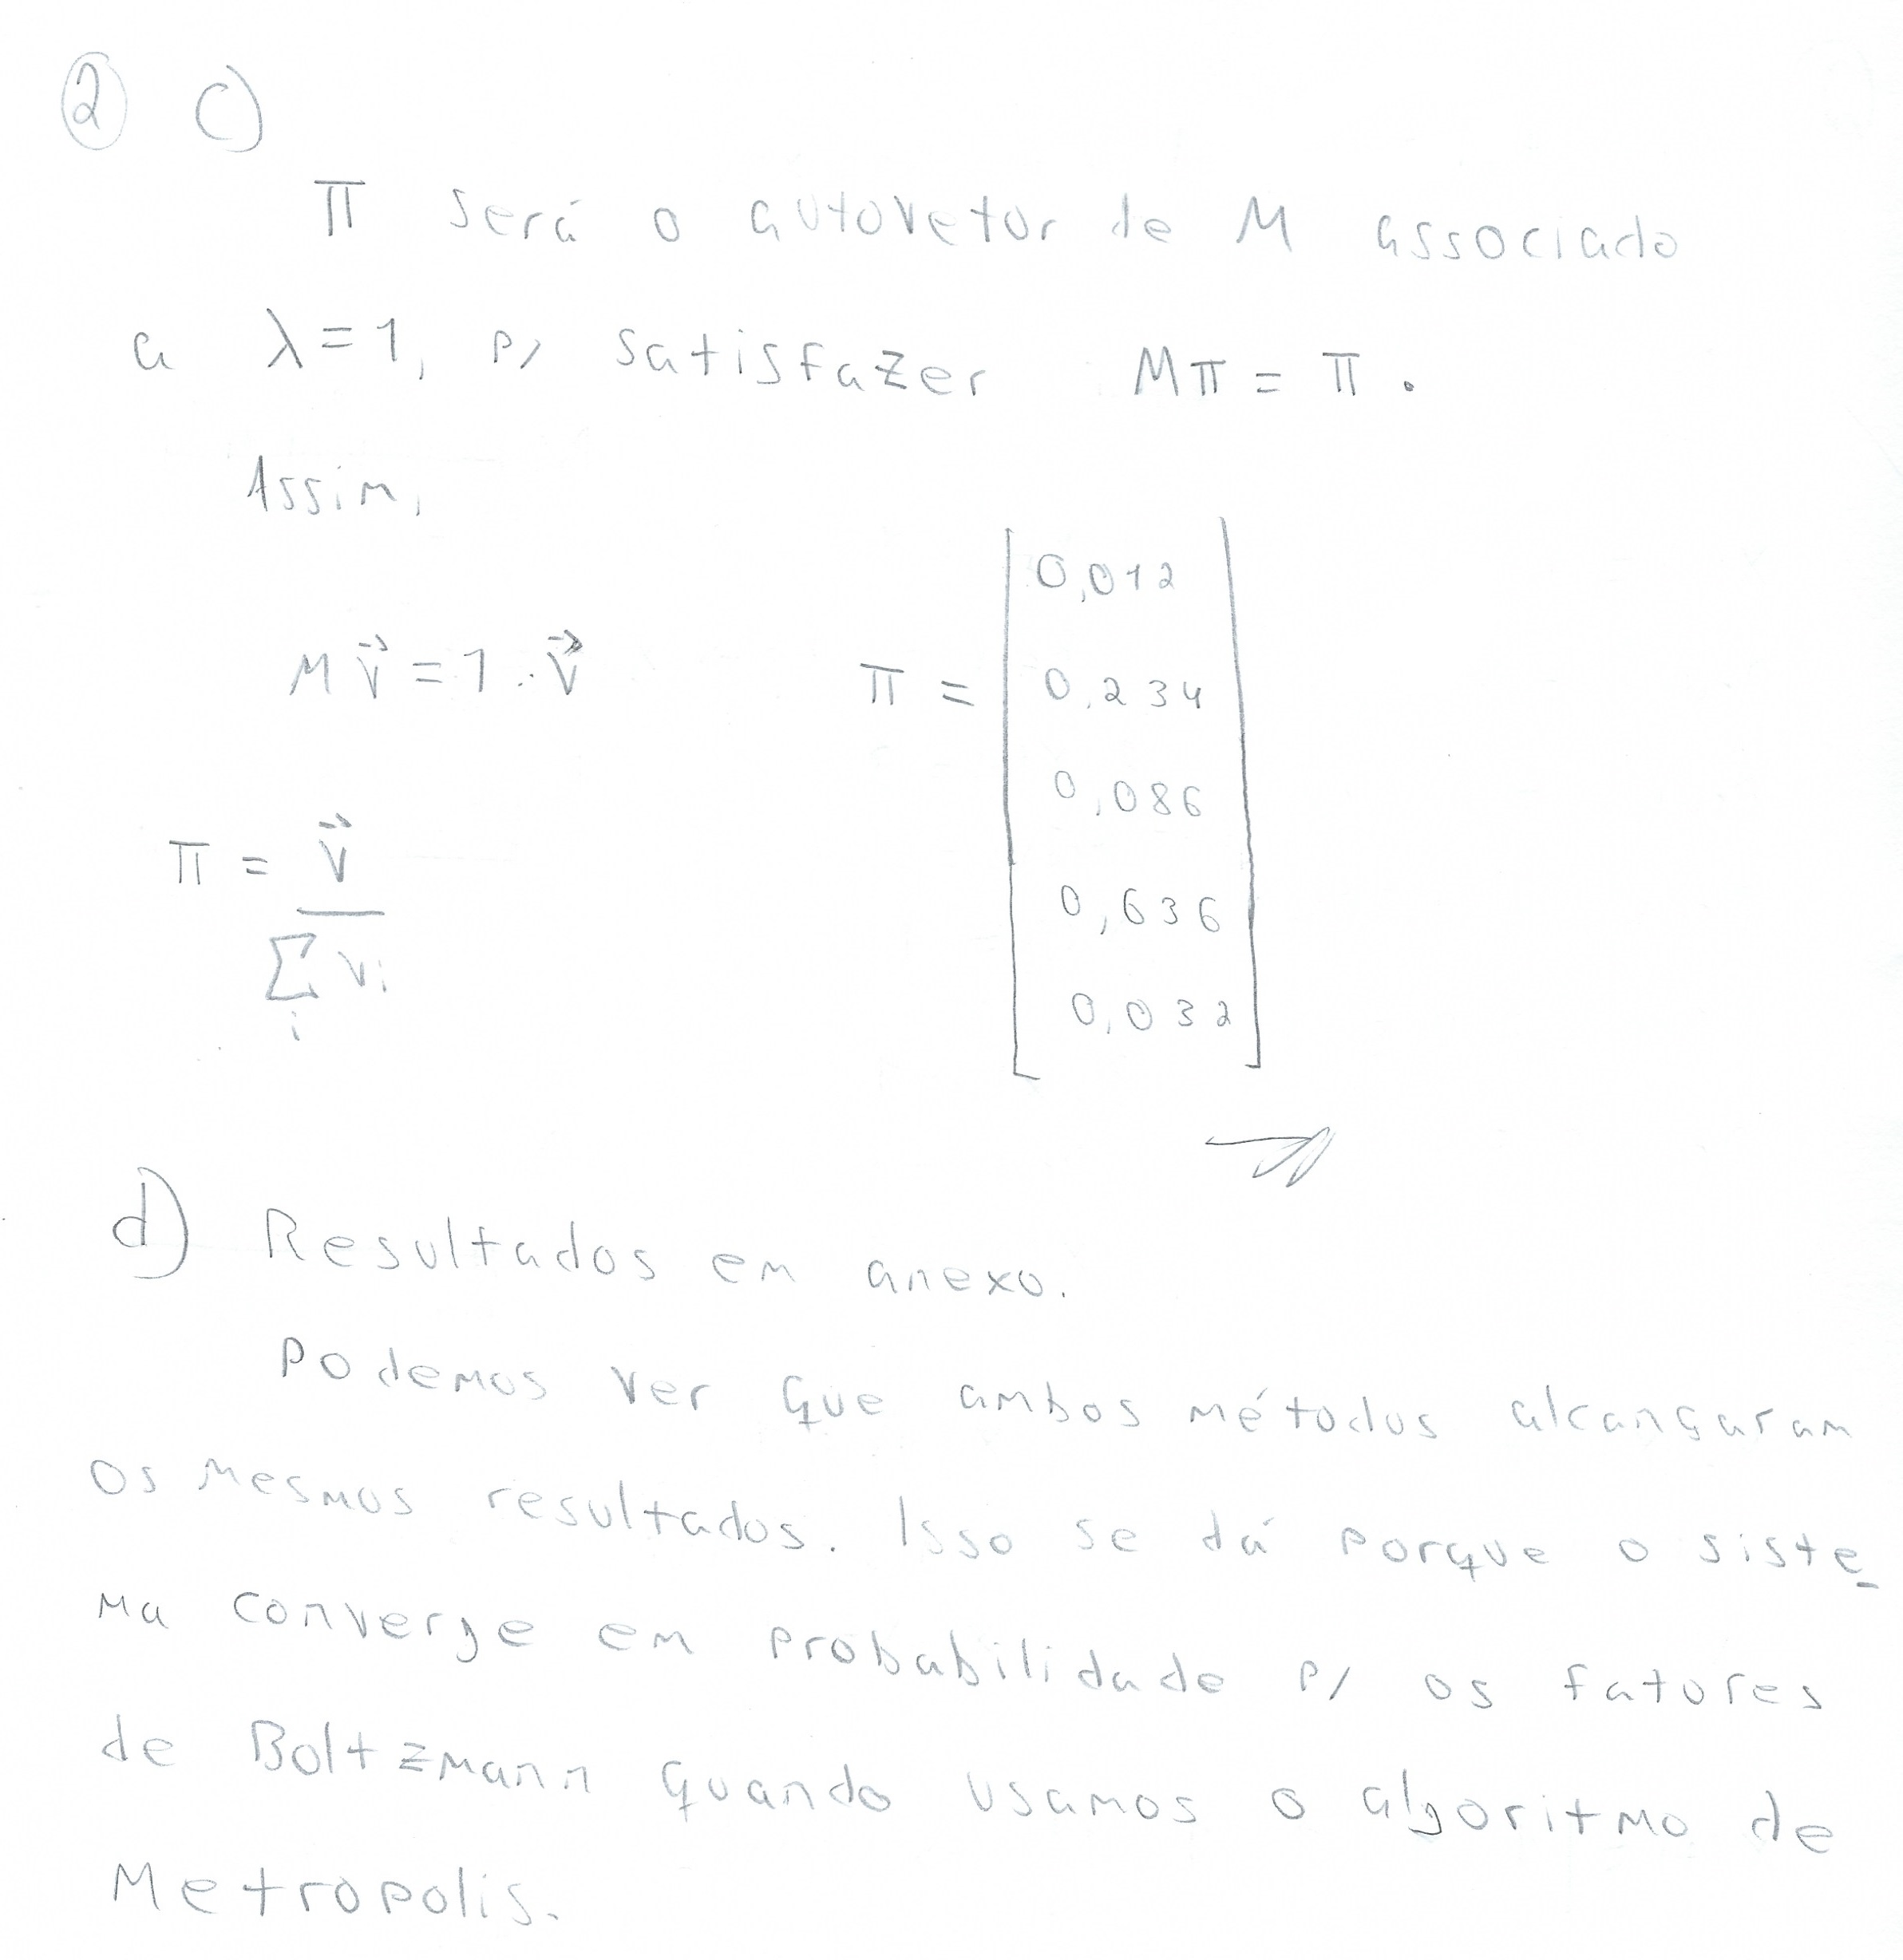 2 c)
π será o autovetor de M associado
a λ=1, p/ satisfazer Mπ = π.
Assim,
π = [0,012
0,234
0,086
0,636
0,032]
M v⃗ = 1 . v⃗
π = v⃗ / Σ_i v_i
d) Resultados em anexo.
Podemos ver que ambos métodos alcançaram
os mesmos resultados. Isso se dá porque o siste
ma converge em probabilidade p/ os fatores
de Boltzmann quando usamos o algoritmo de
Metropolis.